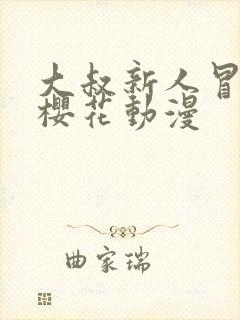 大叔新人冒
櫻花動漫
曲家瑞